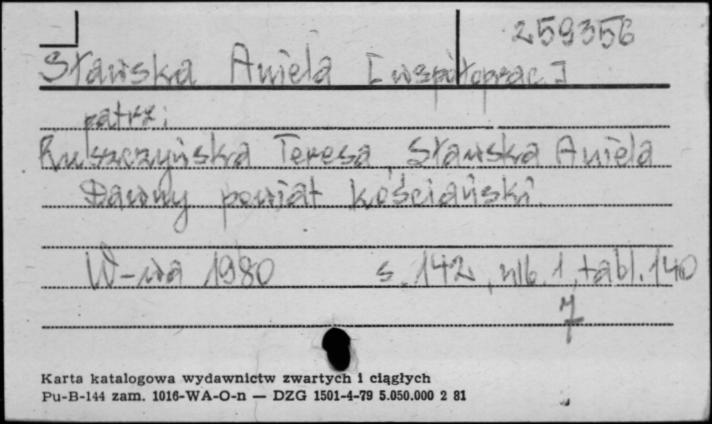 259356
Sławska Aniela [współoprac.]
patrz:
Ruszczyńska Teresa, Sławska Aniela
Dawny powiat kościański.
W-wa 1980 s. 142, nlb. 1, tabl. 140
7
Karta katalogowa wydawnictw zwartych i ciągłych
Pu-B-144 zam. 1016-WA-O-n — DZG 1501-4-79 5.050.000 2 81